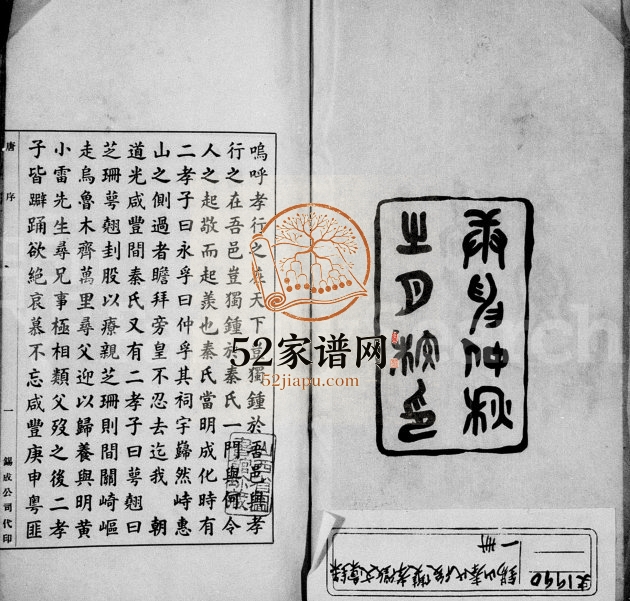 庚申仲秋
之月校印
嗚呼孝行之在天下豈獨鍾於吾邑與孝
行之在吾邑豈獨鍾於秦氏一門與何令
人之起敬而起羨也秦氏當明成化時有
二孝子曰永孚曰仲孚其祠宇巋然峙惠
山之側過者瞻拜旁皇不忍去迄我 朝
道光咸豐間秦氏又有二孝子曰萼翹曰
芝珊萼翹刲股以療親芝珊則間關崎嶇
走烏魯木齊萬里尋父迎以歸養與明黃
小雷先生尋兄事極相類父歿之後二孝
子皆躃踊欲絕哀慕不忘咸豐庚申粵匪
唐序 一 錫成公司代印
52家谱网
52jiapu.com
錫山秦氏後雙孝徵文彙錄
一冊
史1990